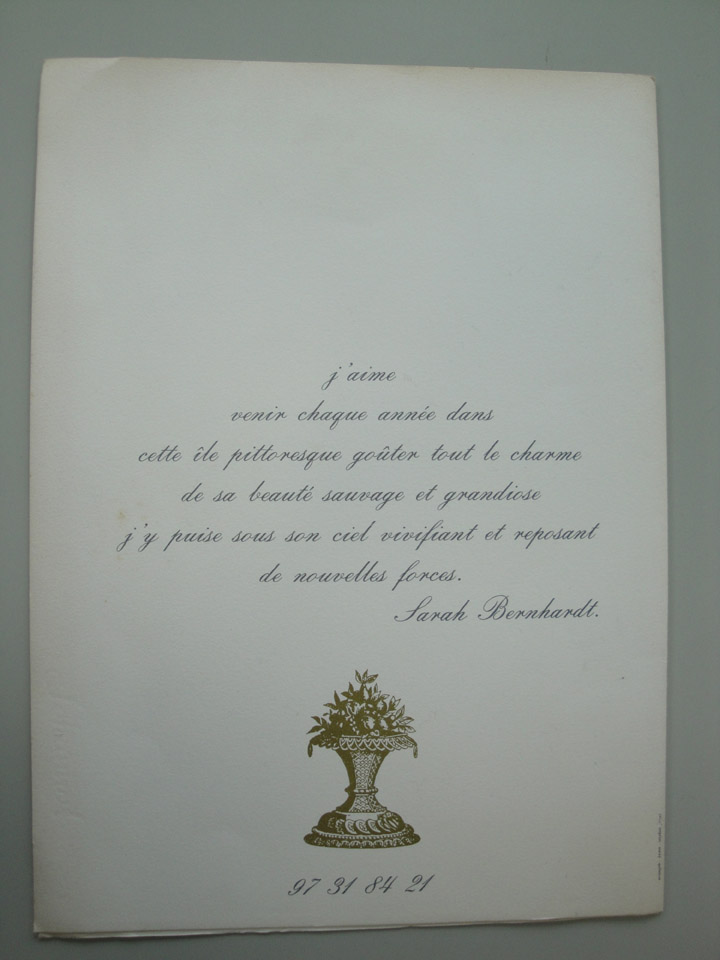 j'aime
venir chaque année dans
cette île pittoresque goûter tout le charme
de sa beauté sauvage et grandiose
j'y puise sous son ciel vivifiant et reposant
de nouvelles forces.
Sarah Bernhardt.
97 31 84 21